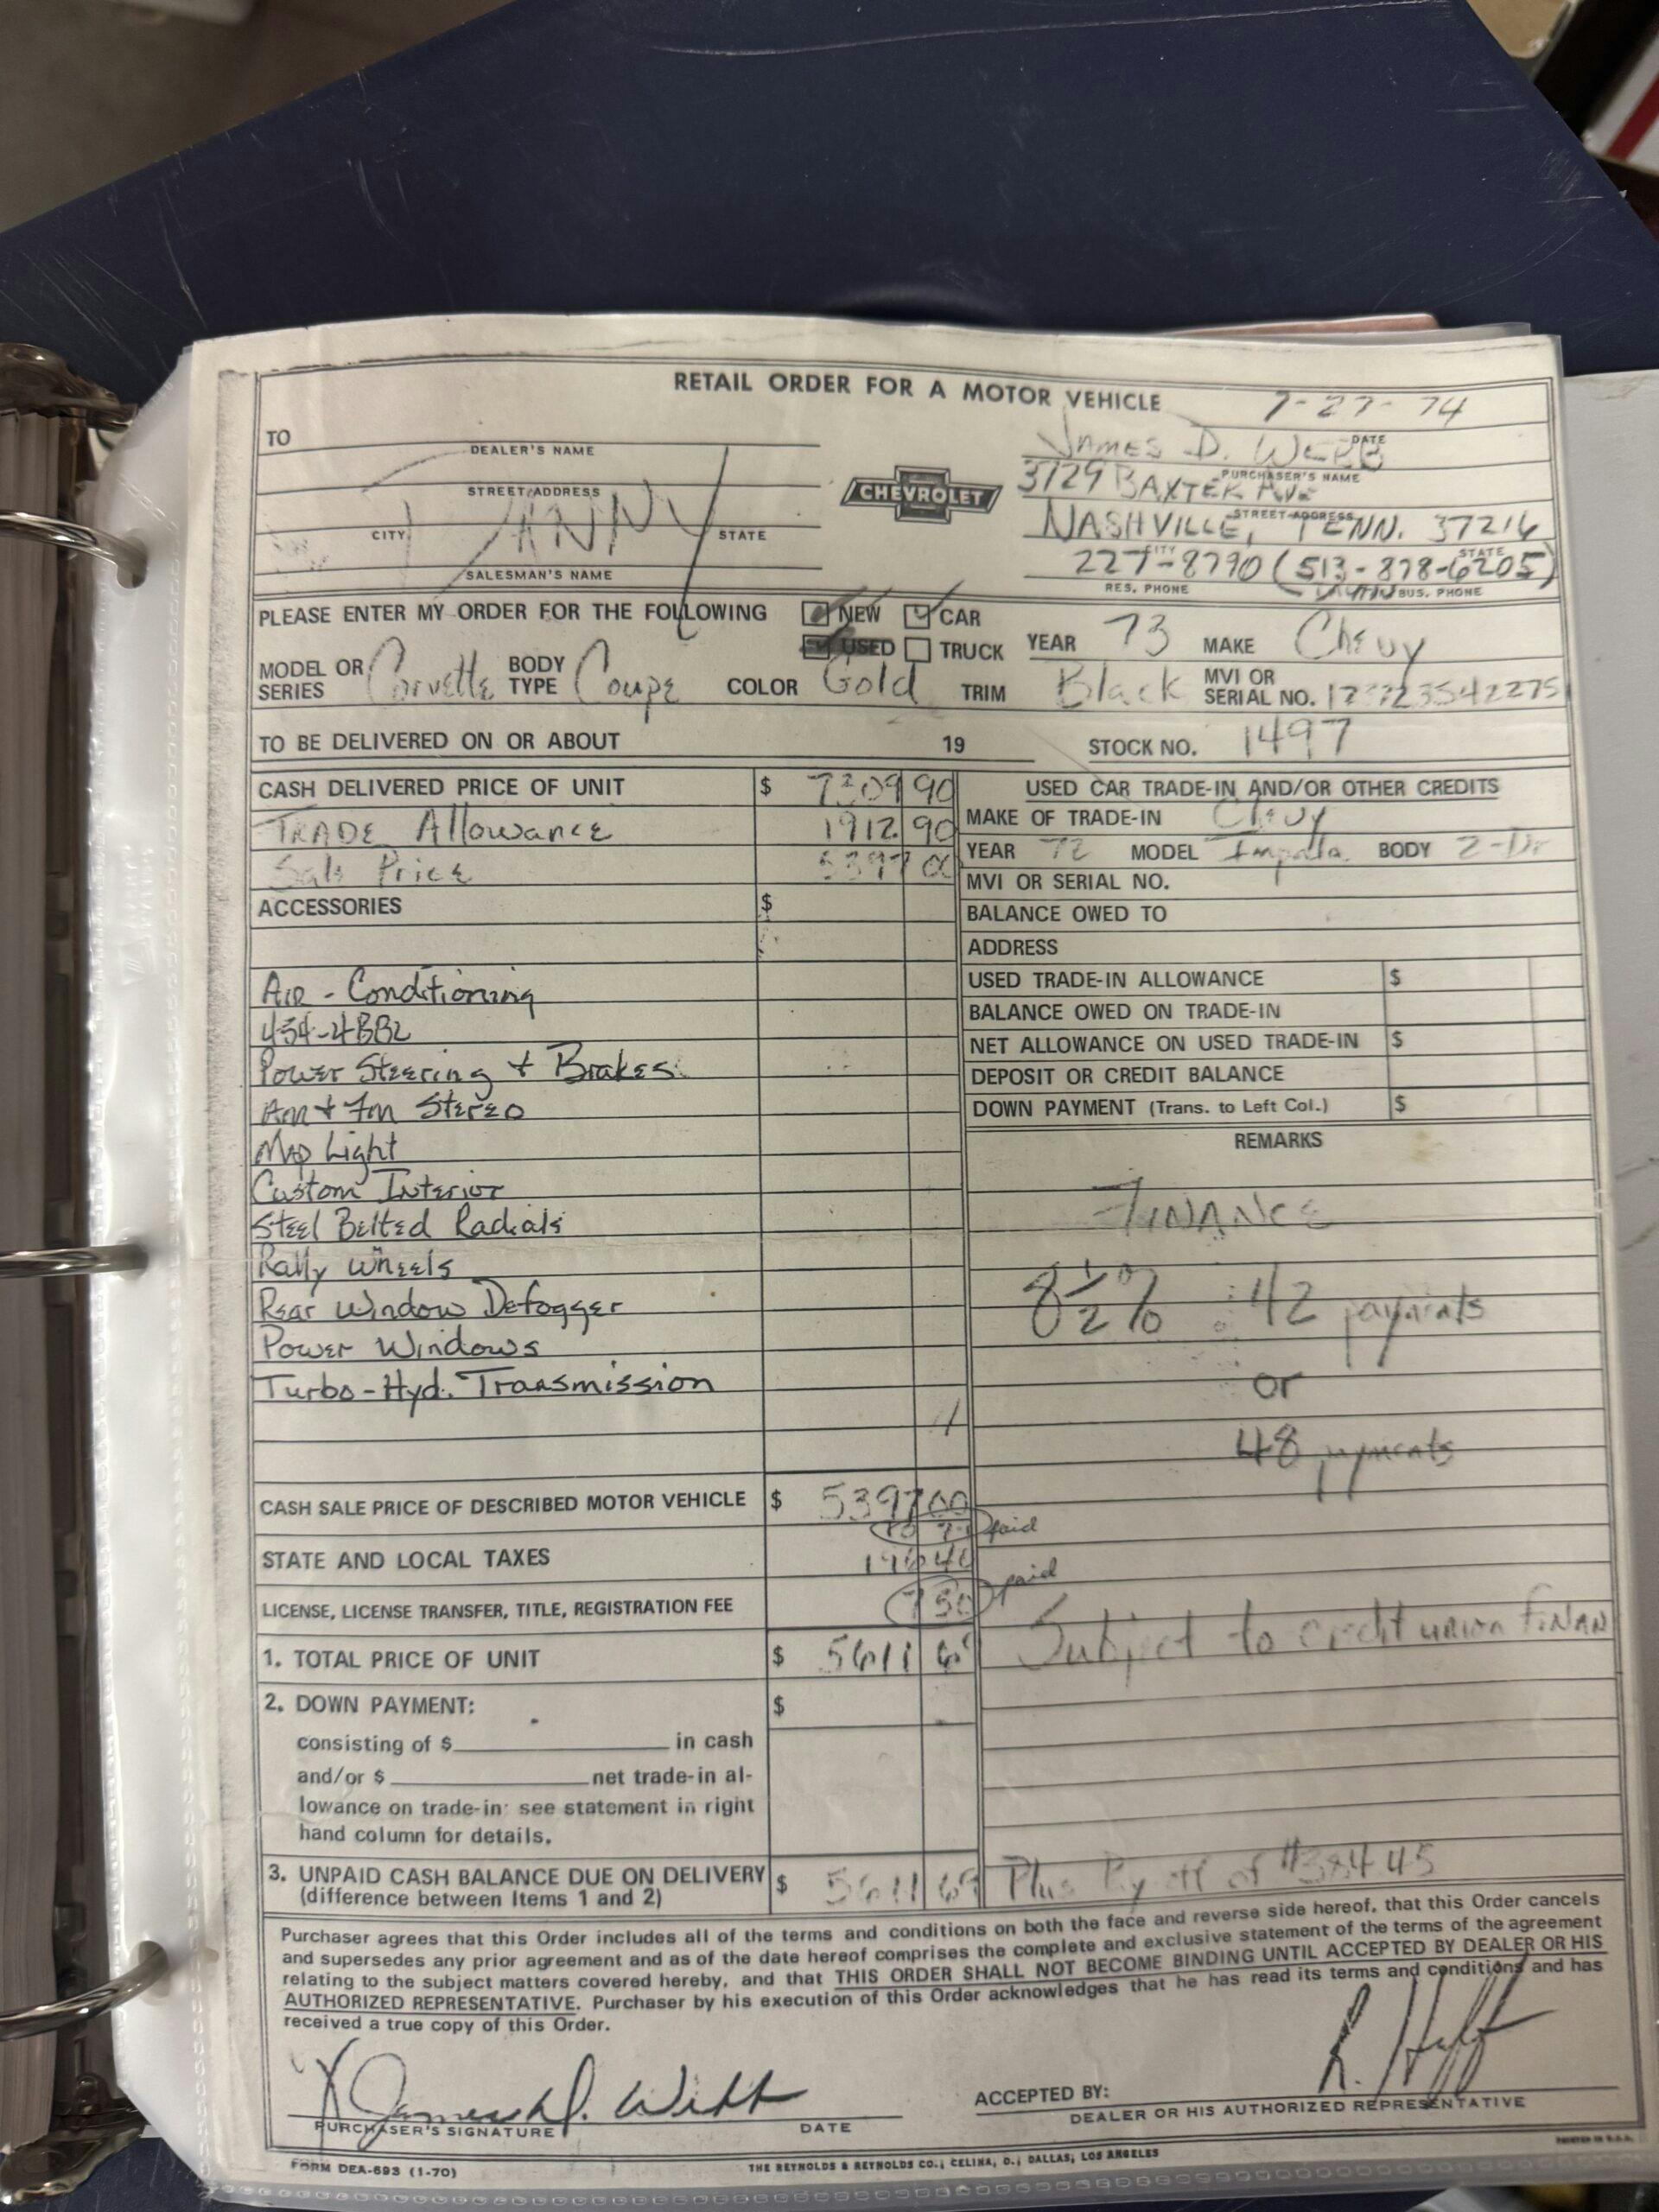 RETAIL ORDER FOR A MOTOR VEHICLE
7-27-74
DATE
TO
DEALER'S NAME
STREET ADDRESS
CITY
STATE
SALESMAN'S NAME
CHEVROLET
JAMES D. WEBB
PURCHASER'S NAME
3729 BAXTER AVE
STREET ADDRESS
NASHVILLE, TENN. 37216
CITY STATE
227-8790 (513-878-6205)
RES. PHONE BUS. PHONE
PLEASE ENTER MY ORDER FOR THE FOLLOWING NEW CAR
USED TRUCK YEAR 73 MAKE Chevy
MODEL OR SERIES Corvette BODY TYPE Coupe COLOR Gold TRIM Black MVI OR SERIAL NO.
TO BE DELIVERED ON OR ABOUT 19 STOCK NO. 1497
CASH DELIVERED PRICE OF UNIT $ 7309 90
TRADE Allowance 1912 90
Sale Price 5397 00
ACCESSORIES $
Air-Conditioning
454-4BBL
Power Steering + Brakes
Am + Fm Stereo
Map Light
Custom Interior
Steel Belted Radials
Rally Wheels
Rear Window Defogger
Power Windows
Turbo-Hyd. Transmission
USED CAR TRADE-IN AND/OR OTHER CREDITS
MAKE OF TRADE-IN Chevy
YEAR 72 MODEL Impala BODY 2-Dr
MVI OR SERIAL NO.
BALANCE OWED TO
ADDRESS
USED TRADE-IN ALLOWANCE $
BALANCE OWED ON TRADE-IN
NET ALLOWANCE ON USED TRADE-IN $
DEPOSIT OR CREDIT BALANCE
DOWN PAYMENT (Trans. to Left Col.) $
REMARKS
FINANCE
8 1/2 % 42 payments
or
48 payments
CASH SALE PRICE OF DESCRIBED MOTOR VEHICLE $ 5397 00
paid
STATE AND LOCAL TAXES
LICENSE, LICENSE TRANSFER, TITLE, REGISTRATION FEE 7 50 paid
Subject to credit union FINAN
1. TOTAL PRICE OF UNIT $ 5611
2. DOWN PAYMENT: $
consisting of $ in cash
and/or $ net trade-in al-
lowance on trade-in: see statement in right
hand column for details.
3. UNPAID CASH BALANCE DUE ON DELIVERY $ 5611 69
(difference between Items 1 and 2)
Plus Payoff of
Purchaser agrees that this Order includes all of the terms and conditions on both the face and reverse side hereof, that this Order cancels
and supersedes any prior agreement and as of the date hereof comprises the complete and exclusive statement of the terms of the agreement
relating to the subject matters covered hereby, and that THIS ORDER SHALL NOT BECOME BINDING UNTIL ACCEPTED BY DEALER OR HIS
AUTHORIZED REPRESENTATIVE. Purchaser by his execution of this Order acknowledges that he has read its terms and conditions and has
received a true copy of this Order.
X James D. Webb
PURCHASER'S SIGNATURE DATE
ACCEPTED BY:
DEALER OR HIS AUTHORIZED REPRESENTATIVE
FORM DEA-693 (1-70)
THE REYNOLDS & REYNOLDS CO., CELINA, O., DALLAS, LOS ANGELES
PRINTED IN U.S.A.